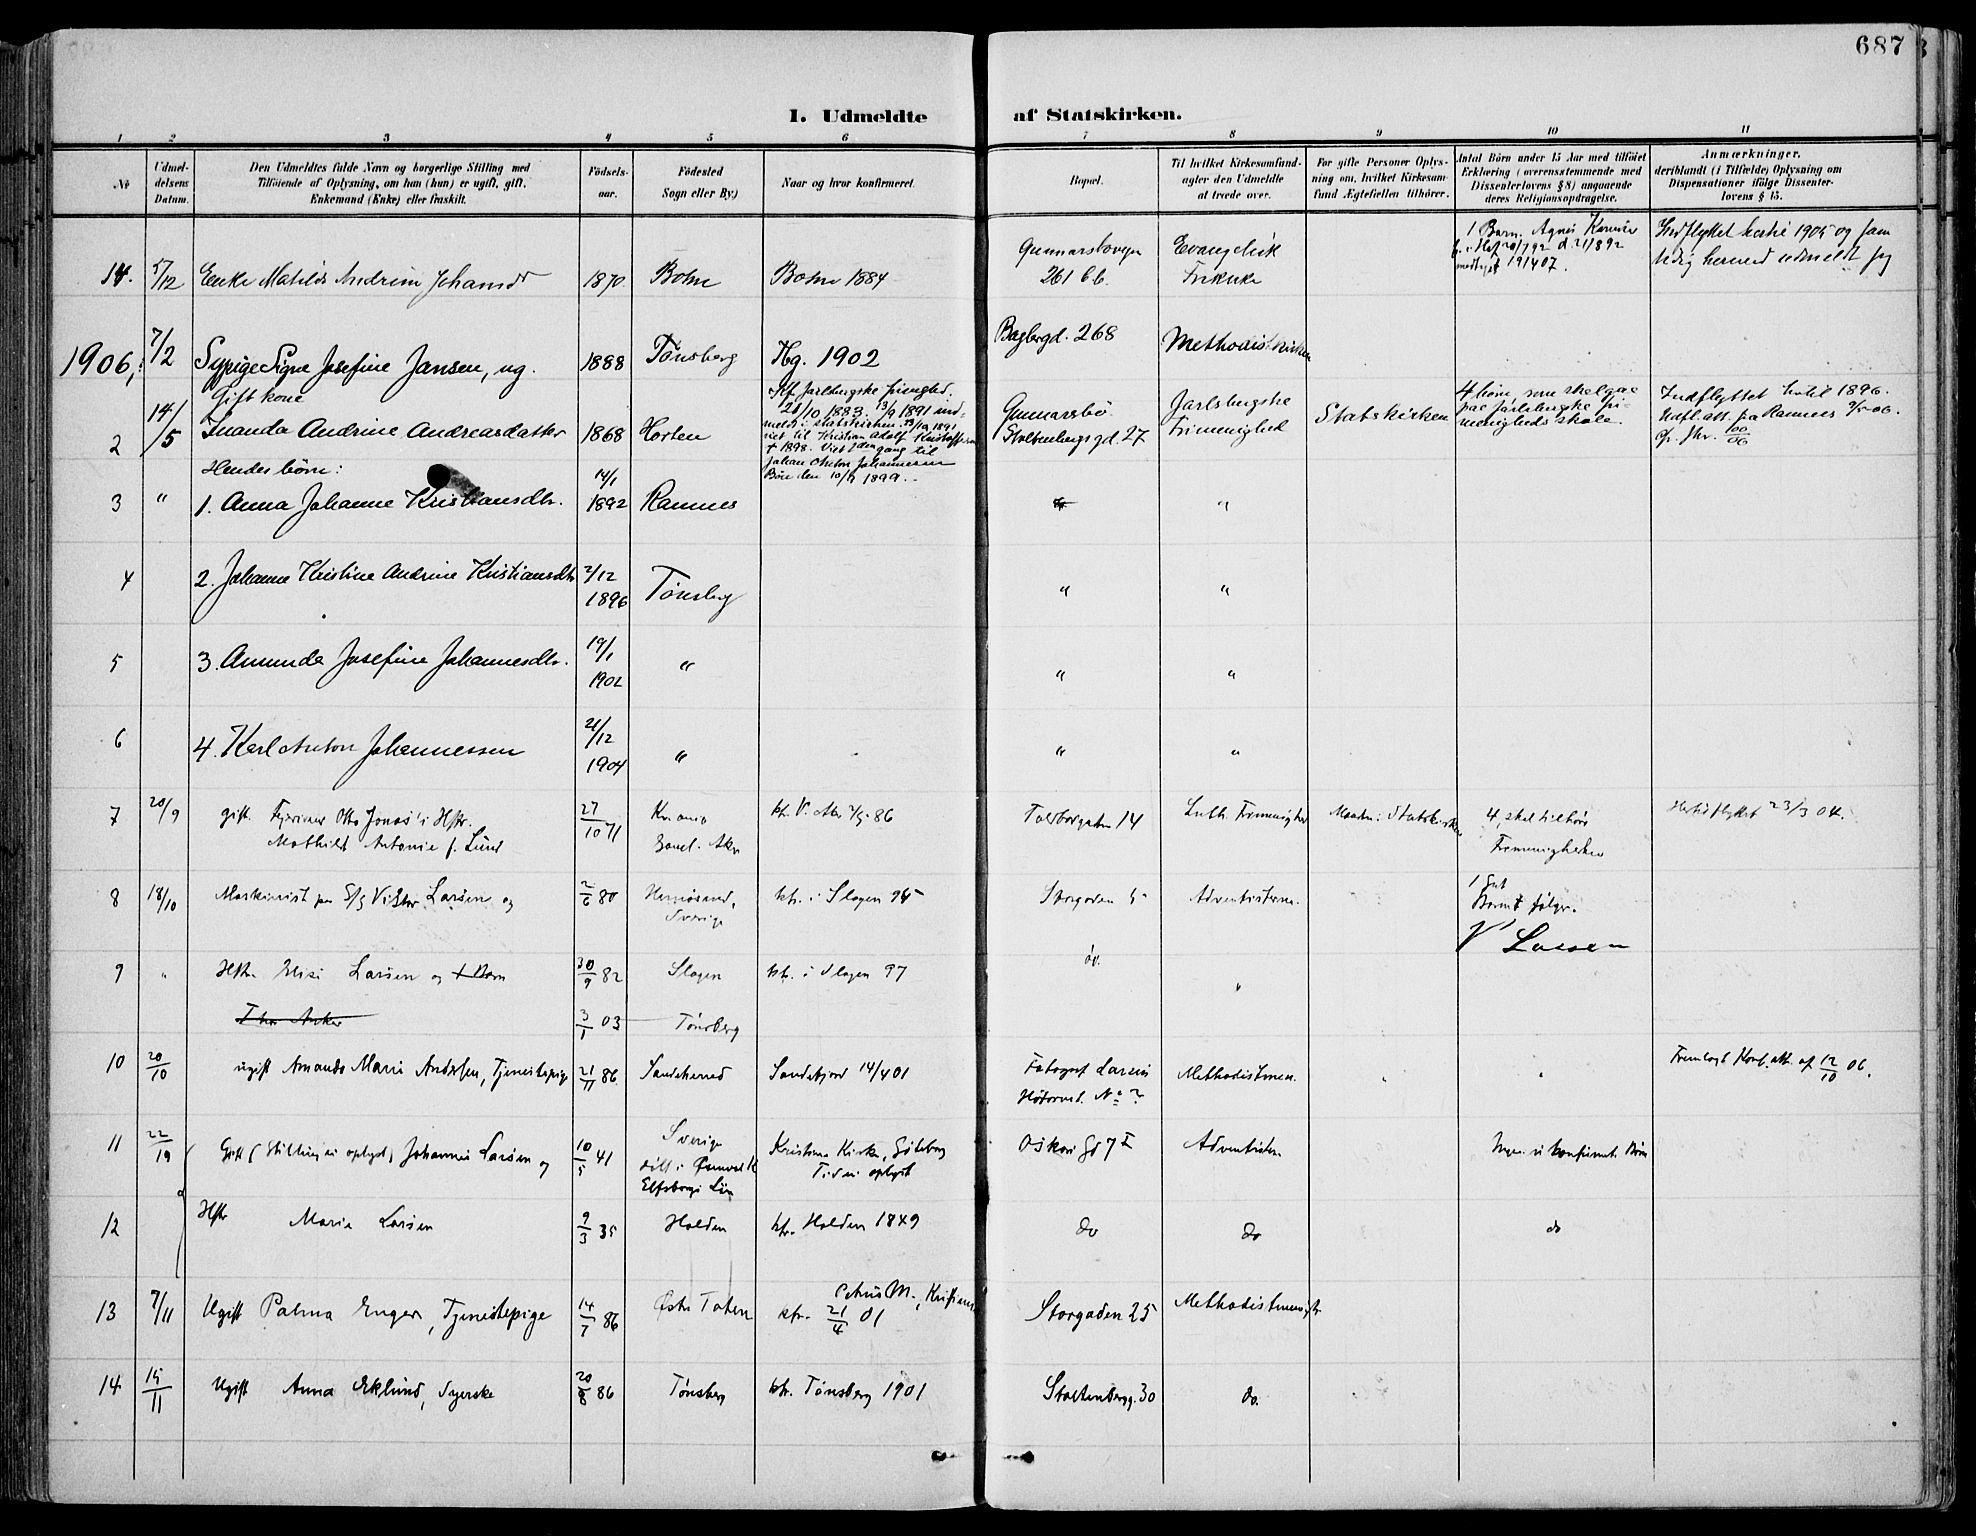 687
I. Udmeldte af Statskirken.
1 2 3 4 5 6 7 8 9 10 11
No
Udmel-
delsens
Datum.
Den Udmeldtes fulde Navn og borgerlige Stilling med
Tilføiende af Oplysning, om han (hun) er ugift, gift.
Enkemand (Enke) eller fraskilt.
Fødsels-
aar.
Fødested
Sogn eller By.)
Naar og hvor konfirmeret.
Bopæl.
Til hvilket Kirkesamfund-
agter den Udmeldte
at træde over.
For gifte Personer Oplys-
ning om, hvilket Kirkesam-
fund Ægtefællen tilhører.
Antal Börn under 15 Aar med tilföiet
Erklæring (overensstemmende med
Dissenterlovens § 8) angaaende
deres Religionsopdragelse.
Anmærkninger.
deriblandt (i Tilfælde) Oplysning om
Dispensationer ifölge Dissenter-
lovens § 15.
14. 5/12 Enke Matilde Andrine Johansdr 1870 Botne Botne 1884
Gunnarsbovegn
261 bb.
Evangelisk
Frikirke
1 Barn. Agnes
Indflyttet hertil 1905 og
1906, 7/2 Sypige Signe Josefine Jansen, ug. 1888 Tønsberg Tbg. 1902 Bagbergd. 268 Methodistkirken
2 14/5 Gift kone
Inanda Andrine Andreasdatter 1868 Horten
Kf. Jarlsbergske frimghed.
21/10 1883. 13/9 1891 ind-
meldt i statskirken.
viet til Kristian Adolf Kristoffersen
† 1898. Viet 2den gang til
Johan Anton Johannesen
Bøe den 10/9 1899.
Gunnarsbø
Stoltenbergs gd. 27
Jarlsbergske
Frimenighed
Statskirken
4 børn, som skal gaa
paa Jarlsbergske fri-
menigheds skole.
Indflyttet hertil 1896.
Udfl. att. fra Ramnes
Hendes børn:
3 " 1. Anna Johanne Kristiansdtr. 14/1 1892 Ramnes "
4 2. Johanne Kristine Andrine Kristiansdtr 2/12 1896 Tønsberg " "
5 3. Amunda Josefine Johannesdtr. 19/1 1902 " " "
6 4. Karl Anton Johannessen 21/12 1904 " " "
7 20/9 gift Otto Jonas's Hstr.
Mathilde Antonie f. Lund 27/10 71
Kr.ania
Gaml. Aker
Luth. Frimenighed
Manden: Statskirken
4, skal tilhøre
Frimenigheden
Hertil flyttet 23/3 04.
8 18/10 Maskinist paa S/S Viktor Larsen og 2/6 80
Hernøsand,
Sverige
kfr. i Slagen 95
Storgaden 5 Adventisterne.
1 Gut
Barnet følger.
V Larsen
9 " Hstr. Elise Larsen og 1 Barn 30/9 82 Slagen kfr. i Slagen 97 do. "
Thor Anker 3/1 03 Tønsberg
10 20/10 ugift Amanda Marie Andersen, Tjenestepige 21/11 86 Sandeherred Sandefjord 14/4 01
Fotograf Larsens
Methodistmen. " "
Fremlagt Konf. att. af 12/10 06.
11 22/19 Gift (Stilling ei oplyst) Johannes Larsen og 10/5 41
Sverige
Elfsborgs Län
Kristine Kirke, Göteborg
Tid ei oplyst
Oskars Gd 7 I Adventisten
Ingen u konfirmt. Børn
12 Hstr Marie Larsen 9/3 35 Halden kfr. Halden 1849 do do do
13 7/11 Ugift Palma Enger, Tjenestepige 14/7 86 Østr Toten
Petrus M., Kristiania
kfr. 21/4 01
Storgaden 25 Methodistmenigh.
14 15/11 Ugift Anna Eklund, Syerske 20/8 86 Tønsberg kfr. Tønsberg 1901 Stoltenbergg. 30 do.